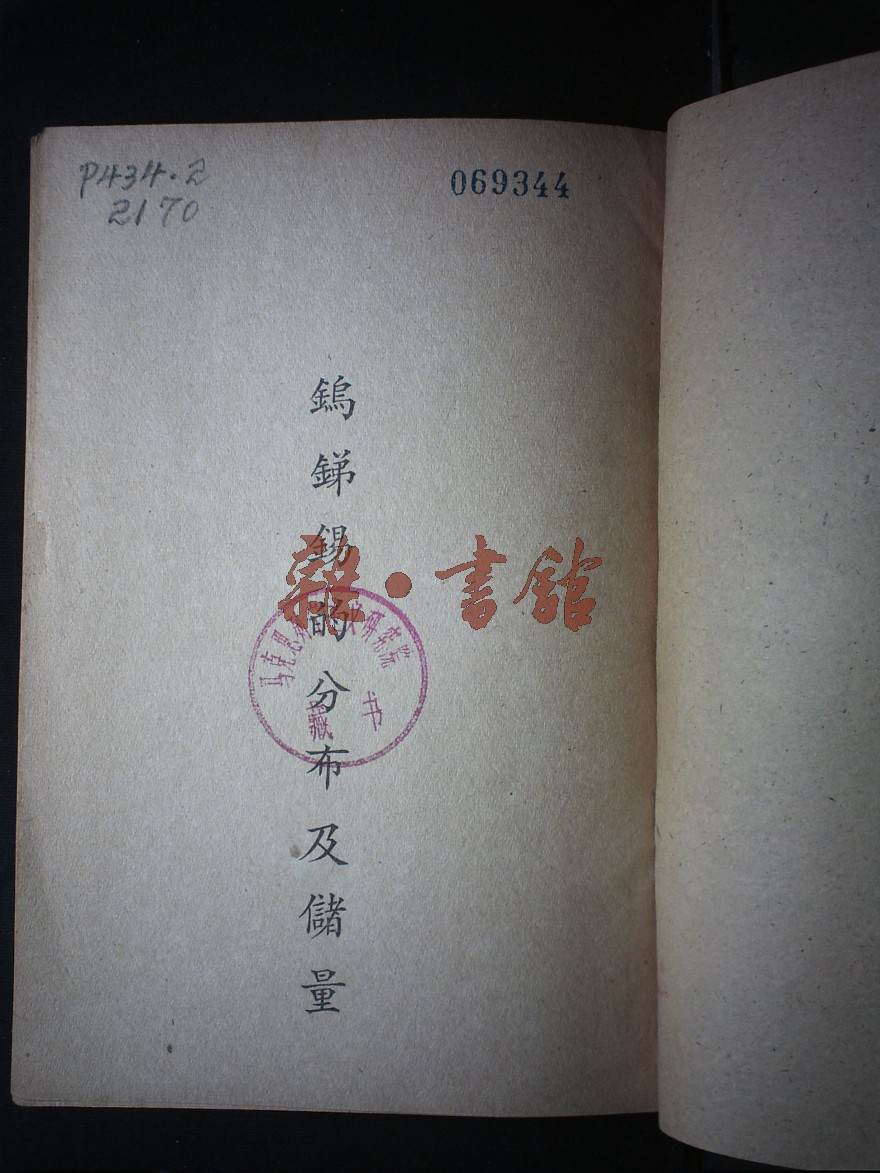 P434.2
2170
069344
鎢銻錫的分布及儲量
雜·書館
藏书